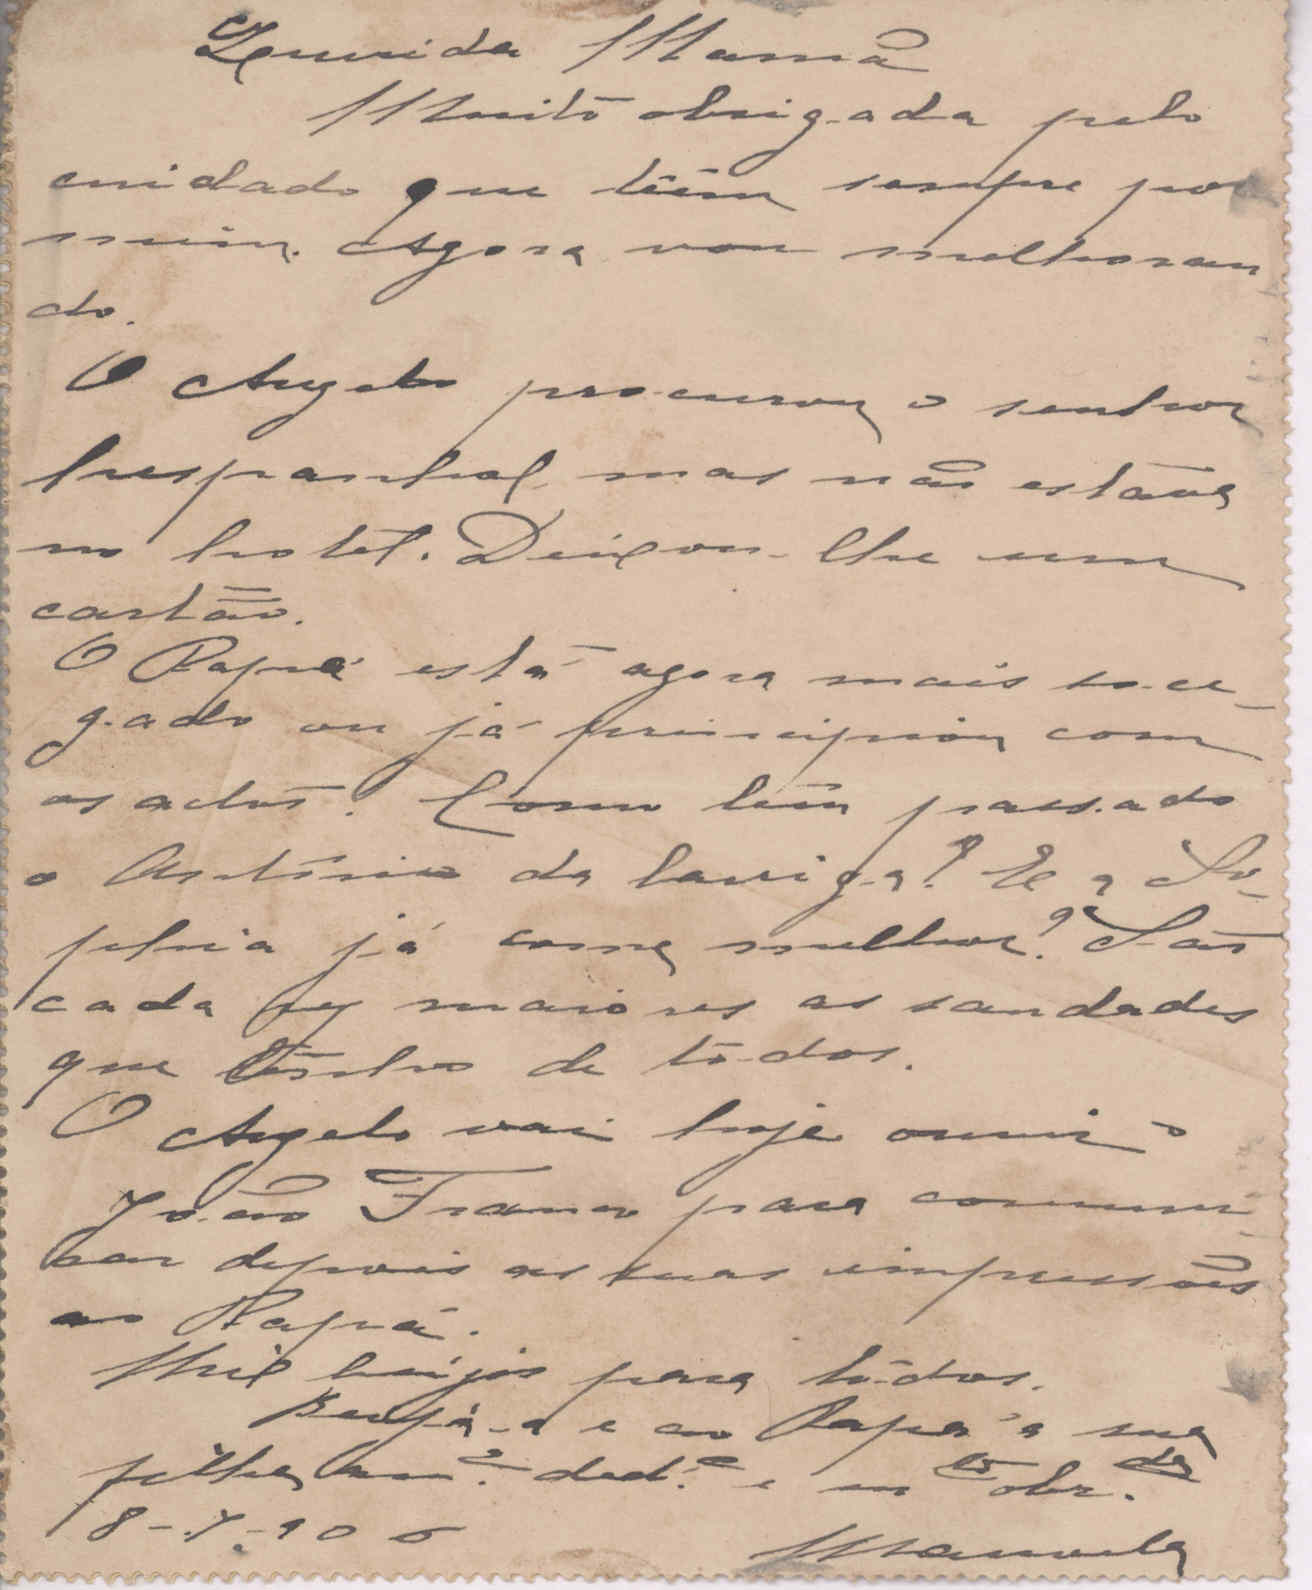 Querida Mamã
Muito obrigada pelo
cuidado que têem sempre por
mim. Agora vou melhoran
do.
O Angelo procurou o senhor
hespanhol mas não estava
no hotel. Deixou-lhe um
cartão.
O Papá está agora mais soce-
gado ou já principiou com
os actos? Como têm passado
o António da
E a So-
phia já come melhor? São
cada vez maiores as saudades
que tenho de todos.
O Angelo vai hoje ouvir o
João Franco para communi-
car depois as suas impressões
ao Papá.
Mil beijos para todos.
Beija-a e ao Papá a sua
filha am.ª ded.ª e m.to obr.da
8-7-906
Manuela